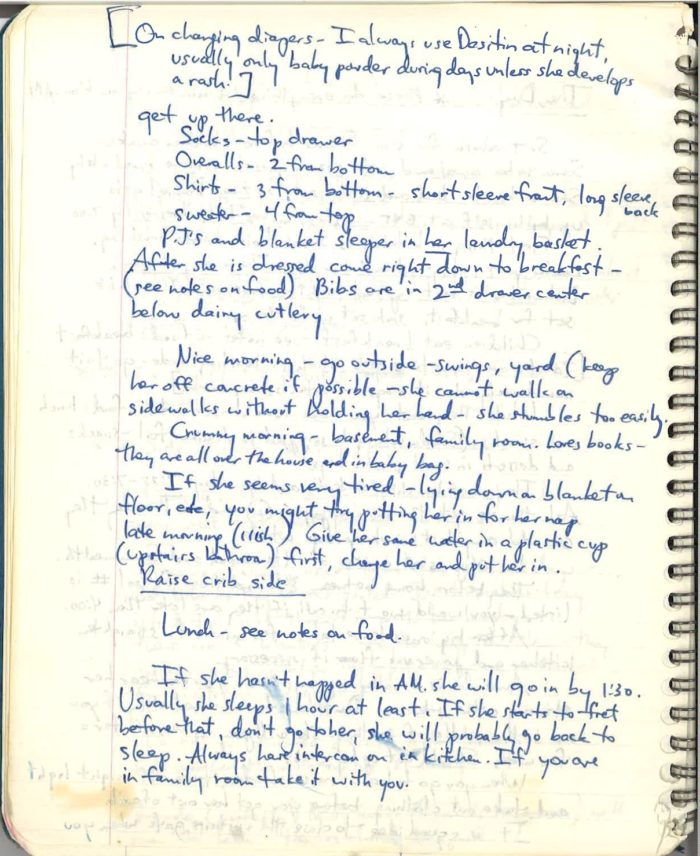 [On changing diapers - I always use Desitin at night,
usually only baby powder during days unless she develops
a rash.]
get up there.
Socks - top drawer
Overalls - 2 from bottom
Shirts - 3 from bottom - short sleeve front, long sleeve
back
sweater - 4 from top
PJ's and blanket sleeper in her laundry basket.
After she is dressed come right down to breakfast -
(see notes on food) Bibs are in 2nd drawer center
below dairy cutlery
Nice morning - go outside - swings, yard (keep
her off concrete if possible - she cannot walk on
sidewalks without holding her hand - she stumbles too easily.
Crummy morning - basement, family room. Loves books -
they are all over the house and in baby bag.
If she seems very tired - lying down on blanket on
floor, etc, you might try putting her in for her nap
late morning (11ish) Give her some water in a plastic cup
(upstairs bathroom) first, change her and put her in.
Raise crib side
Lunch - see notes on food.
If she hasn't napped in AM. she will go in by 1:30.
Usually she sleeps 1 hour at least. If she starts to fret
before that, don't go to her, she will probably go back to
sleep. Always have intercom on in kitchen. If you are
in family room take it with you.